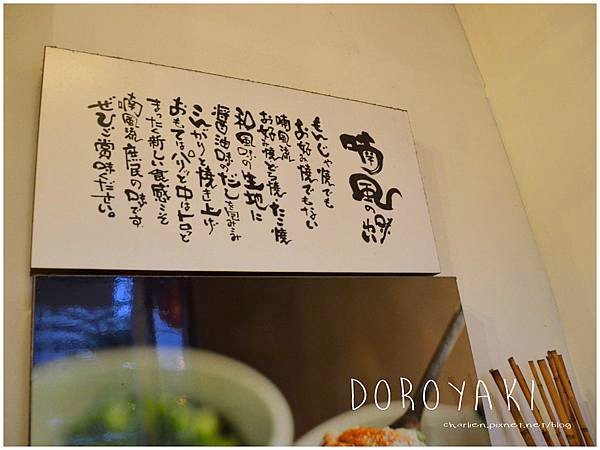 喃風の唄
もんじゃ焼でも
お好み焼でもない
喃風流
お好み焼どろ焼たこ焼
和風味の生地に
醤油味のだしを包みこみ
こんがりと焼き上げ
おもてはパリッと中はトロッと
まったく新しい食感こそ
喃風流庶民の味です
ぜひご賞味ください。
DOROYAKI
charlien.pixnet.net/blog